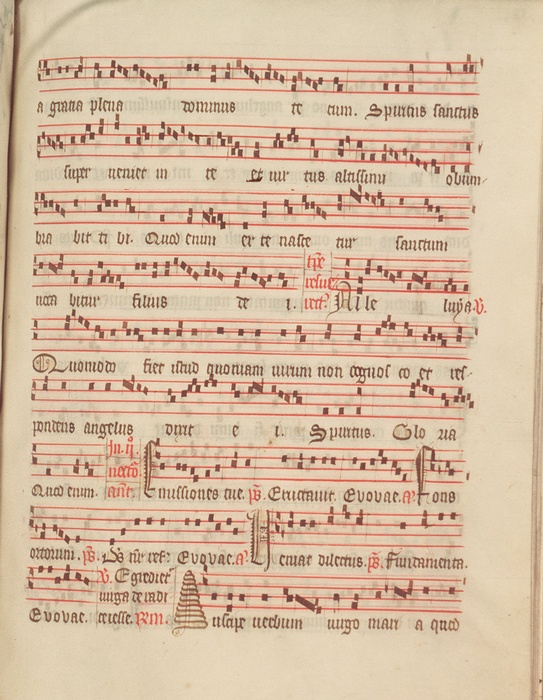 a gratia plena dominus te cum. Spiritus sanctus
super ueniet in te et uir tus altissimi obum
bra bit ti bi. Quod enim ex te nasce tur sanctum
uoca bitur filius de i. Alle luya. V.
Quomodo fiet istud quoniam uirum non cognos co et res
pondens angelus dixit e i. Spiritus. Glo ria
Quod enim. In ij. nocto ant. Emissiones tue. ps. Eructauit. Evovae. a. Fons
ortorum. ps. Ds nr ref. Evovae. a. Veniat dilectus. ps. Fundamenta.
Evovae. V. Egredietr uirga de radi ce iesse. Rm. Suscipe uerbum uirgo mari a quod